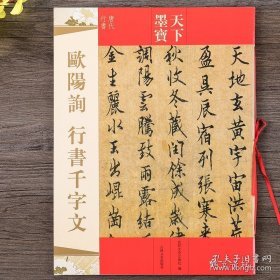 天下
墨寶
唐代
行書
歐陽詢 行書千字文
天地玄黃宇宙洪
盈昃辰宿列張寒来
秋收冬藏閏餘成歲
調陽雲騰致雨露結
金生麗水玉出崑崗
孔夫子旧书网